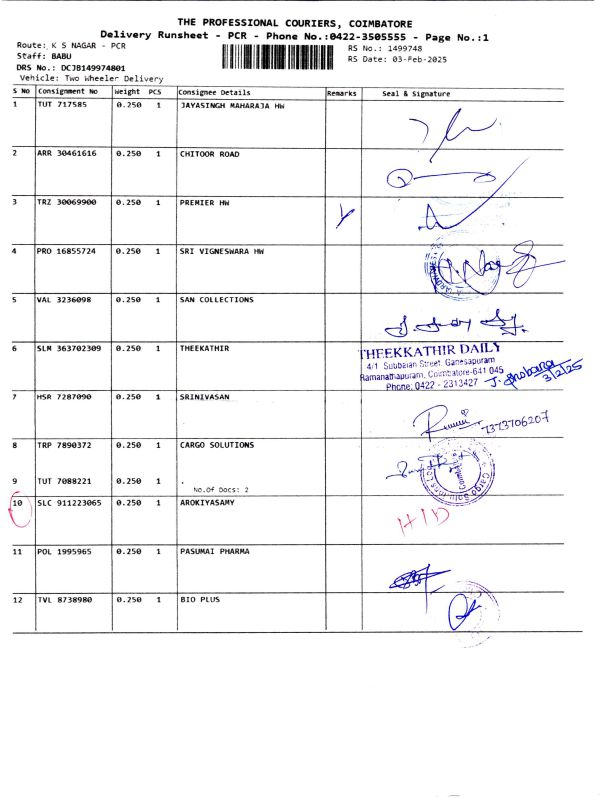 THE PROFESSIONAL COURIERS, COIMBATORE
Delivery Runsheet - PCR - Phone No.:0422-3505555 - Page No.:1
Route: K S NAGAR - PCR
RS No.: 1499748
Staff: BABU
RS Date: 03-Feb-2025
DRS No.: DCJB149974801
Vehicle: Two Wheeler Delivery
S No Consignment No Weight PCS Consignee Details Remarks Seal & Signature
1 TUT 717585 0.250 1 JAYASINGH MAHARAJA HW
2 ARR 30461616 0.250 1 CHITOOR ROAD
3 TRZ 30069900 0.250 1 PREMIER HW
4 PRO 16855724 0.250 1 SRI VIGNESWARA HW
5 VAL 3236098 0.250 1 SAN COLLECTIONS
6 SLM 363702309 0.250 1 THEEKATHIR
THEEKKATHIR DAILY
4/1 Subbaian Street, Ganesapuram
Ramanathapuram, Coimbatore-641 045
Phone: 0422 - 2313427
3/2/25
7 HSR 7287090 0.250 1 SRINIVASAN
7373706207
8 TRP 7890372 0.250 1 CARGO SOLUTIONS
9 TUT 7088221 0.250 1 .
No.Of Docs: 2
10 SLC 911223065 0.250 1 AROKIYASAMY
HID
11 POL 1995965 0.250 1 PASUMAI PHARMA
12 TVL 8738980 0.250 1 BIO PLUS